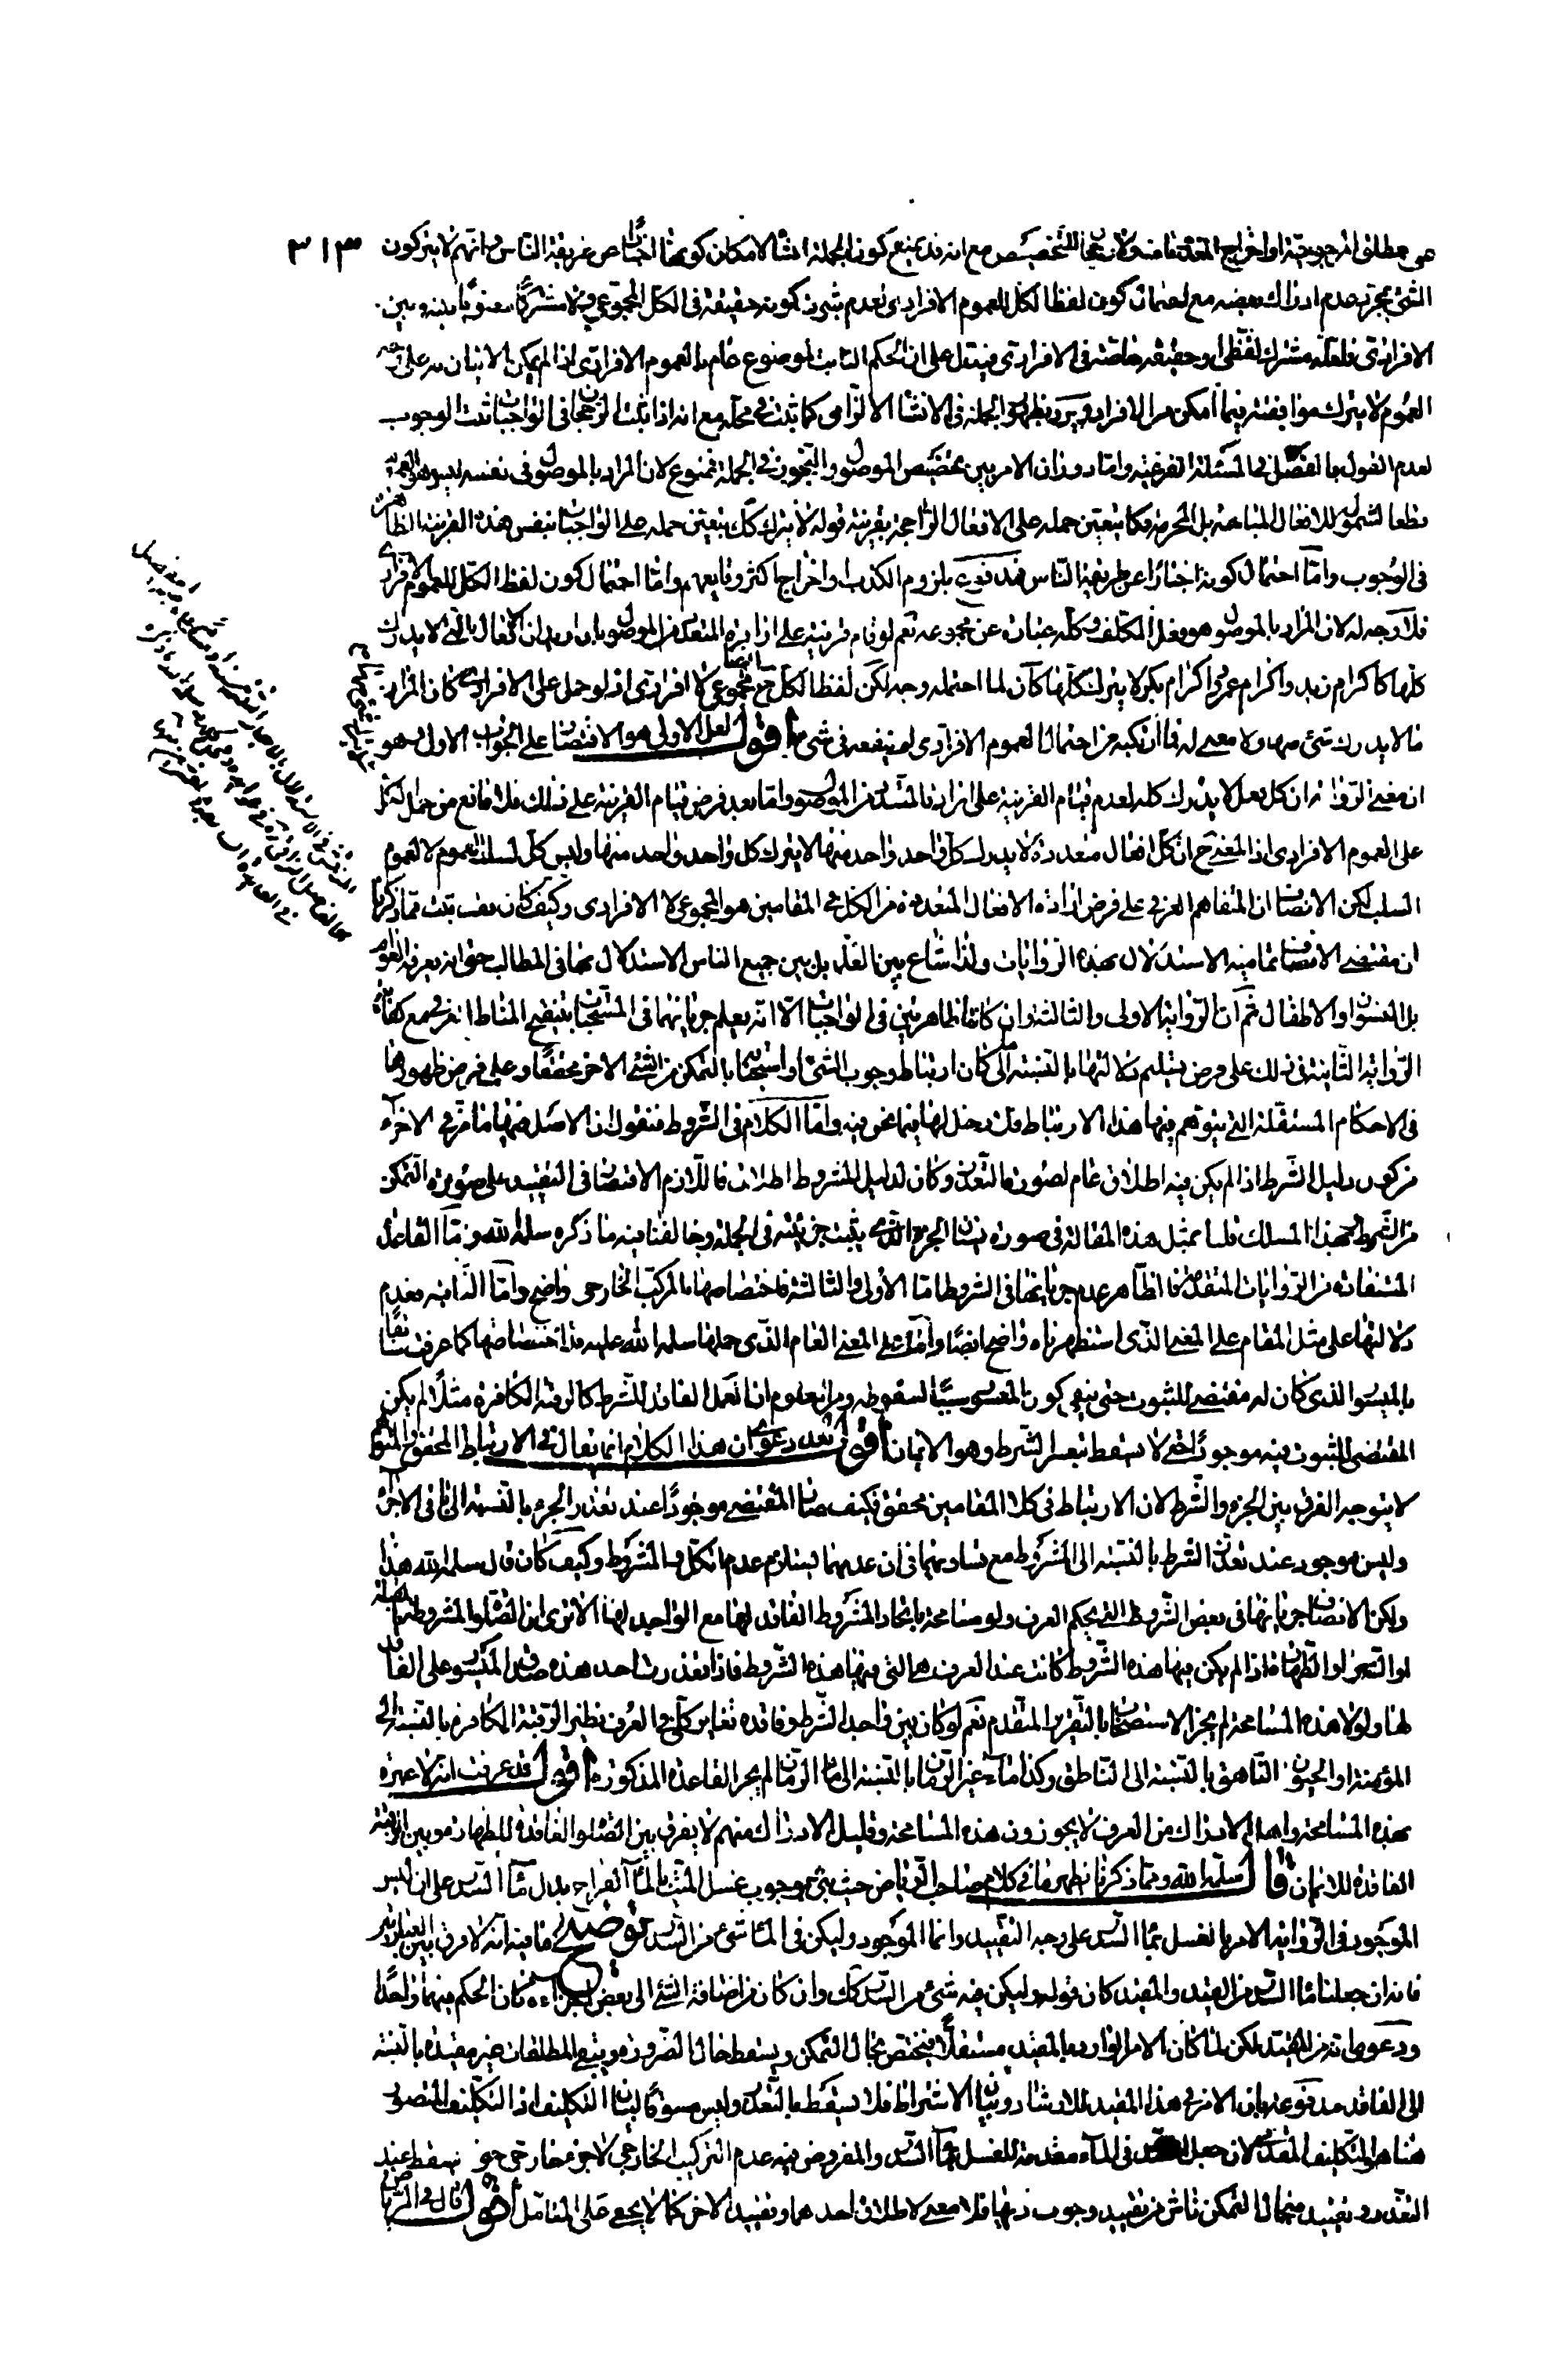 ٣١٣
هى مطلق المرجوحية او اخراج المندوبات ولا رجحان للتخصيص مع انه قد يمنع كون الجملة انشاء لامكان كونها اخبارا عن طريقة الناس وانهم لا يتركون
الشئ بمجرد عدم ادراك بعضه مع احتمال كون لفظ الكل للعموم الافرادى لعدم ثبوت كونه حقيقة فى الكل المجموعى ولا مشتركا معنويا بينه وبين
الافرادى فلعله مشترك لفظى او حقيقة خاصة فى الافرادى فيدل على ان الحكم الثابت لموضوع عام بالعموم الافرادى اذا لم يمكن الاتيان به على وجه
العموم لا يترك موافقته فيما امكن من الافراد ويرد بظهور الجملة فى الانشاء الالزامى كما ثبت فى محله مع انه اذا ثبت الرجحان فى الواجبات ثبت الوجوب
لعدم القول بالفصل فى المسئلة الفرعية واما دوران الامر بين تخصيص الموصول والتجوز فى الجملة فممنوع لان المراد بالموصول فى نفسه ليس هو العموم
قطعا لشموله للافعال المباحة بل المحرمة فكما يتعين حمله على الافعال الراجحة بقرينة قوله لا يترك كك يتعين حمله على الواجبات بنفس هذه القرينة الظاهرة
فى الوجوب واما احتمال كونه اخبارا عن طريقة الناس فمدفوع بلزوم الكذب او اخراج اكثر وقايعهم واما احتمال كون لفظ الكل للعموم الافرادى
فلا وجه له لان المراد بالموصول هو فعل المكلف وكله عبارة عن مجموعه نعم لو قام قرينة على ارادة المتعدد من الموصول بان اريد ان الافعال التى لا يدرك
كلها كاكرام زيد واكرام عمرو واكرام بكر لا يترك كلها كان لما احتمله وجه لكن لفظ الكل ح ايضا مجموعى لا افرادى اذ لو حمل على الافرادى كان المراد
ما لا يدرك شئ منها ولا معنى له فما ارتكبه من احتمال العموم الافرادى لم ينفعه فى شئ اقول لعل الاولى هو الاقتصار على الجواب الاول وهو
ان معنى الرواية ان كل فعل لا يدرك كله لعدم قيام القرينة على ارادة المتعدد من الموصول واما بعد فرض قيام القرينة على ذلك فلا مانع من حمل الكل
على العموم الافرادى اذ المعنى ح ان كل افعال متعددة لا يدرك كل واحد واحد منها لا يترك كل واحد واحد منها وليس كل لسلب العموم لا لعموم
السلب لكن الانصاف ان المتفاهم العرفى على فرض ارادة الافعال المتعددة من الكل فى المقامين هو المجموعى لا الافرادى وكيف كان فقد ثبت مما ذكرنا
ان مقتضى الانصاف تمامية الاستدلال بهذه الروايات ولذا شاع بين العلماء بل بين جميع الناس الاستدلال بها فى المطالب حتى انه يعرفه العوام
بل النسوان والاطفال ثم ان الرواية الاولى والثالثة وان كانتا ظاهرتين فى الواجبات الا انه يعلم جريانهما فى المستحبات بتنقيح المناط العرفى مع كفاية
الرواية الثانية فى ذلك على فرض تسليم دلالتها بالنسبة الى كان ارتباط وجوب الشئ او استحبابه بالتمكن من الشئ الاخر محققا وعلى فرض ظهورها
فى الاحكام المستقلة التى يتوهم فيها هذا الارتباط فلا دخل لها فيما نحن فيه واما الكلام فى الشروط فنقول ان الاصل فيها ما مر فى الاجزاء
من كون دليل الشرط اذا لم يكن فيه اطلاق عام لصورة التعذر وكان لدليل المشروط اطلاق فاللازم الاقتصار فى التقييد على صورة التمكن
من الشرط وهذا المسلك قلنا بمثل هذه المقالة فى صورة نسيان الجزء الذى يثبت جزئيته فى الجملة وخالفنا فيه ما ذكره سلمه الله واما القاعدة
المستفادة من الروايات المتقدمة فالظاهر عدم جريانها فى الشروط اما الاولى والثالثة فاختصاصهما بالمركب الخارجى واضح واما الثانية فعدم
دلالتها على مثل المقام على المعنى الذى استظهرناه واضح ايضا واما على المعنى العام الذى حملها سلمه الله عليه فلاختصاصها كما عرفت سابقا
بالميسور الذى كان له مقتضى للثبوت حتى ينفى كون المعسور سببا لسقوطه ومن المعلوم ان العمل الفاقد للشرط كالرقبة الكافرة مثلا لم يكن
المقتضى للثبوت فيه موجودا حتى لا يسقط بتعسر الشرط وهو الايمان اقول بعد دعوى ان هذا الكلام انما يقال فى الارتباط المحقق
لا يتوجه الفرق بين الجزء والشرط لان الارتباط فى كلا المقامين محقق فكيف صار المقتضى موجودا عند تعذر الجزء بالنسبة الى باقى الاجزاء
وليس موجود عند تعذر الشرط بالنسبة الى المشروط مع تساويهما فى ان عدمهما يستلزم عدم الكل والمشروط وكيف كان قال سلمه الله هذا
ولكن الانصاف جريانها فى بعض الشروط التى يحكم العرف ولو مسامحة باتحاد المشروط الفاقد لها مع الواجد لها الا ترى ان الصلوة المشروطة بالقبلة
او الستر او الطهارة اذا لم يكن فيها هذه الشروط كانت عند العرف هى التى فيها هذه الشروط فاذا تعذر احد هذه صدق الميسور على الفاقد
لها ولولا هذه المسامحة لم يجز الاستصحاب بالتقرير المتقدم نعم لو كان بين واجد الشرط وفاقده تغاير كلى فى العرف نظير الرقبة الكافرة بالنسبة الى
المؤمنة او الحيوان الناهق بالنسبة الى الناطق وكذا ماء غير الرمان بالنسبة الى ماء الرمان لم يجر القاعدة المذكورة اقول قد عرفت انه لا عبرة
بهذه المسامحة واهالى الادراك من العرف لا يجوزون هذه المسامحة وقليل الادراك منهم لا يفرق بين الصلوة الفاقدة للطهارة وبين الرقبة
الفاقدة للايمان قال سلمه الله ومما ذكرنا يظهر ما فى كلام صاحب الرياض حيث بنى وجوب غسل الميت بالماء القراح بدل ماء السدر على ان ليس
الموجود فى الرواية الامر بالغسل بماء السدر على وجه التقييد وانما الموجود وليكن فى الماء شئ من السدر توضيح ما فيه انه لا فرق بين العبارتين
فانه ان جعلنا ماء السدر من القيد والمقيد كان قوله وليكن فيه شئ من السدر كك وان كان من اضافة الشئ الى بعض اجزائه كان الحكم فيهما واحدا
ودعوى انه من المقيد لكن لما كان الامر الوارد بالمقيد مستقلا فيختص بحال التمكن ويسقط حال الضرورة ويبقى المطلقات غير مقيدة بالنسبة
الى الفاقد مدفوعة بان الامر فى هذا المقيد للارشاد وبيان الاشتراط فلا يسقط بالتعذر وليس مسوقا لبيان التكليف اذ التكليف المتصور
هنا هو التكليف المقدمى لان جعل السدر فى الماء مقدمة للغسل بماء السدر والمفروض فيه عدم التركيب الخارجى لا جزء خارجى حتى يسقط عند
التعذر وتقييده بحال التمكن ناش من تقييد وجوب ذيها فلا معنى لاطلاق احدهما وتقييد الاخر كما لا يخفى على المتامل اقول قال فى الرياض